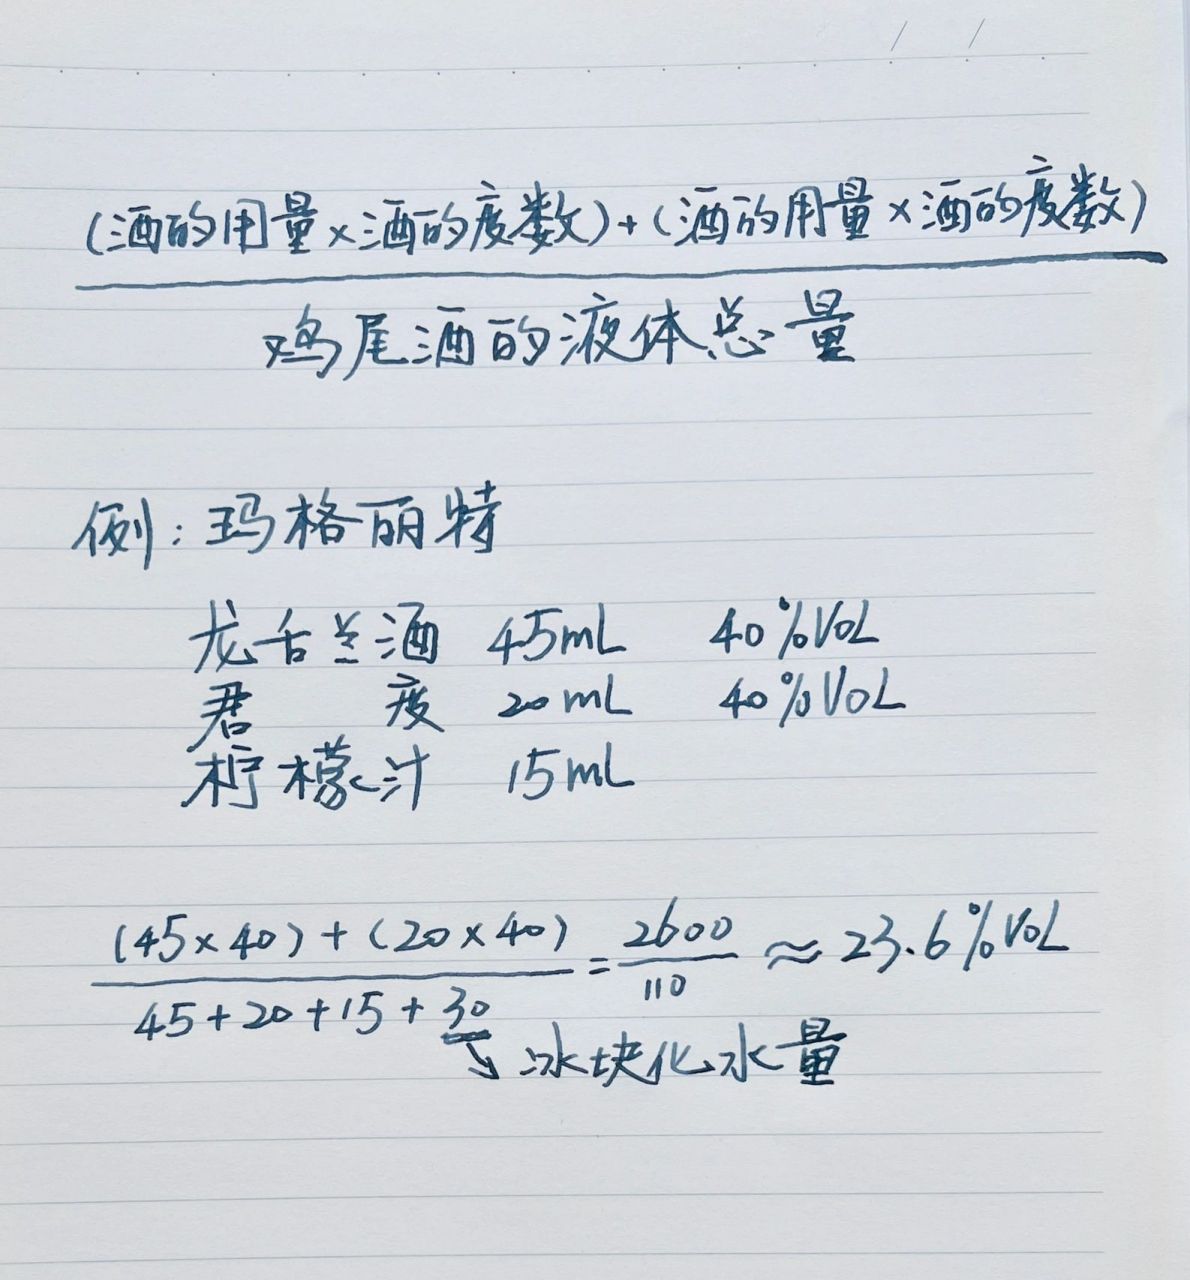 (酒的用量×酒的度数)+(酒的用量×酒的度数)
鸡尾酒的液体总量
例:玛格丽特
龙舌兰酒 45mL 40%VOL
君 度 20mL 40%VOL
柠檬汁 15mL
(45×40)+(20×40)
45+20+15+30
=2600
110
≈23.6%VOL
冰块化水量